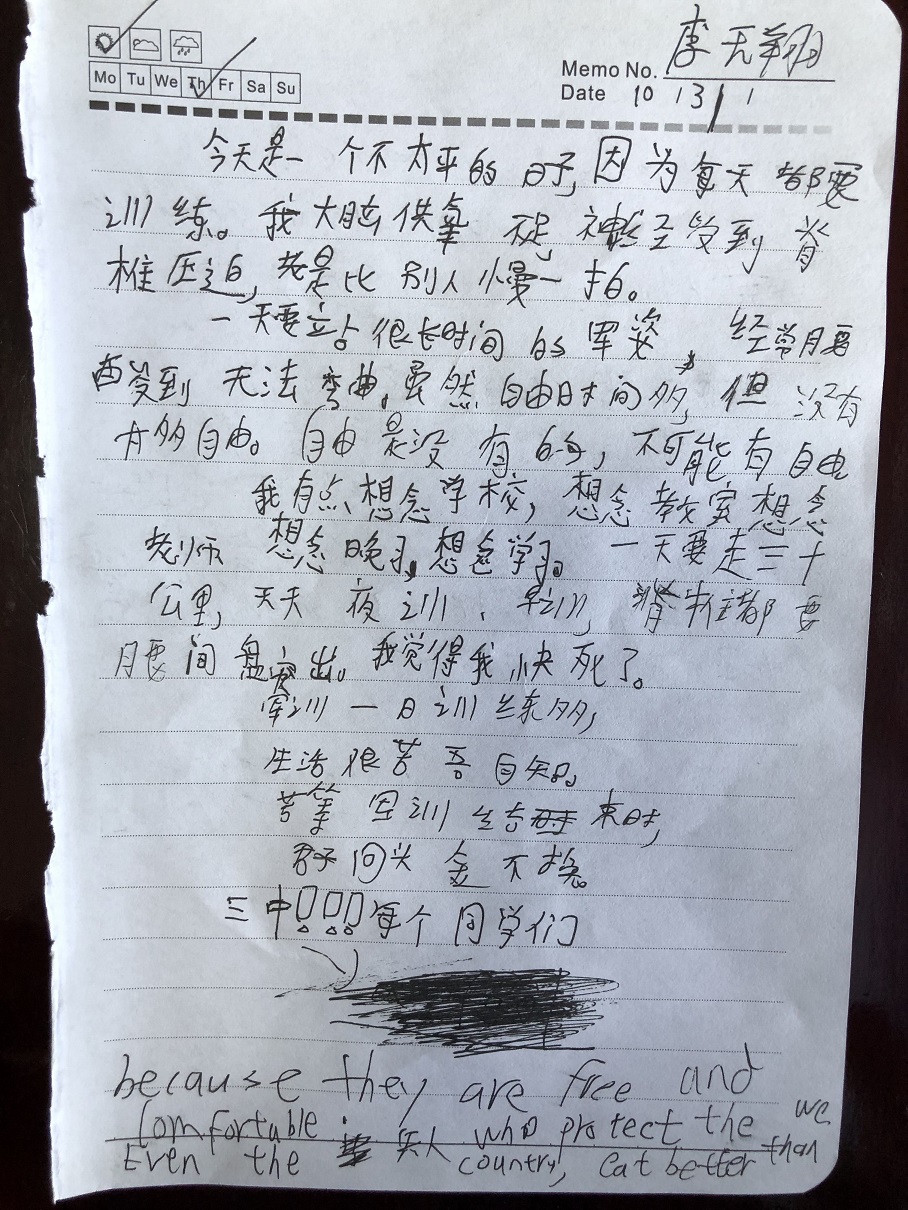 Mo Tu We Th Fr Sa Su
Memo No. 李天翔
Date 10 13 1
今天是一个不太平的日子,因为每天都要
训练。我大脑供氧不足,神经受到脊
椎压迫,总是比别人慢一拍。
一天要立占很长时间的军姿,经常腰
酸到无法弯曲。虽然自由时间多,但没有
太多自由。自由是没有的,不可能有自由
我有点想念学校,想念教室想念
老师想念晚习,想念学习。一天要走三十
公里,天天夜训、早训,脊椎都要
腰间盘突出。我觉得我快死了。
军训一日训练多,
生活很苦吾自知。
苦等军训结束时,
君子回头金不换。
三中!!!每个同学们
because they are free and
comfortable. who protect the we
Even the 兵人 country, eat better than